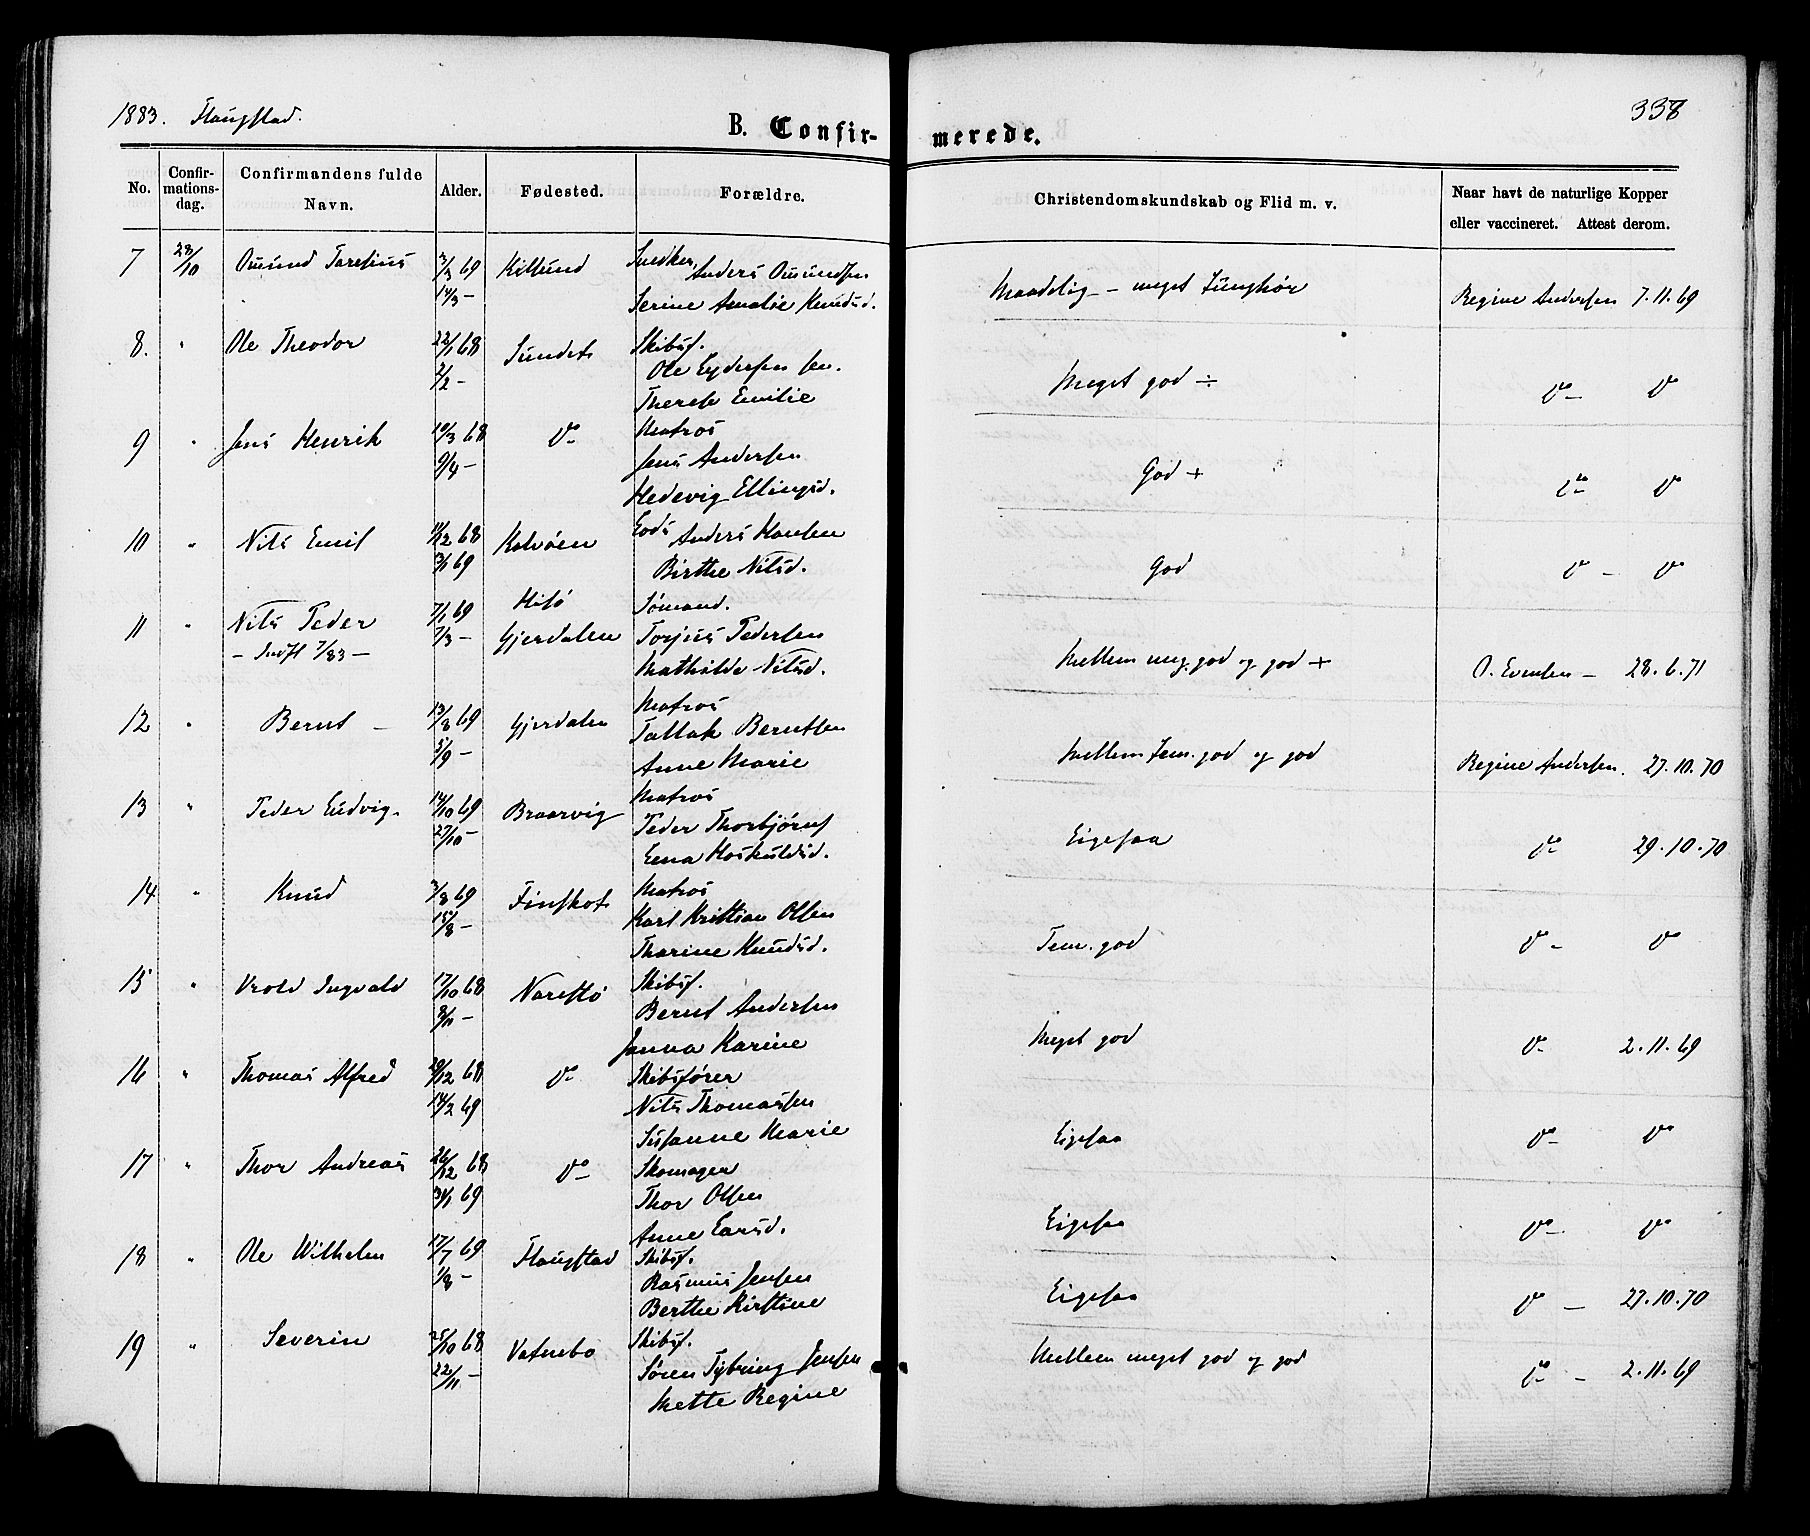 1883. Flangstad.
338
B. Confir-
merede.
No.
Confir-
mations-
dag.
Confirmandens fulde
Navn.
Alder.
Fødested.
Forældre.
Christendomskundskab og Flid m. v.
Naar havt de naturlige Kopper
eller vaccineret. Attest derom.
7 28/10 Omund Tarefius 69 Killund Snedker Anders Omundsen
14/3 - Serine Amalie Knudsd.
Maadelig - meget Tunghør Regine Andersen 7.11.69
8. " Ole Theodor 22/1 68 Sundet Skibsf.
2/2 - Ole Eydersen
Therese Emilie
Meget god ÷ Do - Do
9 " Jens Henrik 10/3 68 Do Matros
9/4 - Jens Andersen
Hedevig Ellingsd.
God + Do Do
10 " Nils Emil 11/12 68 Kalvøen Anders Hansen
69 Birthe Nilsd.
God Do - Do
11 " Nils Peder 7/1 69 Hisö Sømand.
- Indfl 7/83 - 7/3 - Gjerdalen Torjus Pedersen
Mathilde Nilsd.
Mellem meg. god og god + O. Evensen - 28.6.71
12 " Bernt - 13/8 69 Gjerdalen Matros
5/9 - Tallak Berntsen
Anne Marie
Mellem tem. god og god Regine Andersen. 27.10.70
13 " Peder Ludvig 14/10 69 Braarvig Matros
27/10 - Peder Thorbjørns
Lena Hoskuldsd.
Ligesaa Do 29.10.70
14 " Knud 3/8 69 Finskot Matros
15/8 - Karl Kristian Olsen
Tharine Knudsd.
Tem. god Do - Do
15 " Vrold Ingvald 17/10 68 Narestø Skibsf.
8/11 - Bernt Andersen
Janna Karine
Meget god Do 2.11.69
16 " Thomas Alfred 29/12 68 Do Skibsfører
14/2 69 Nils Thomassen
Susanne Marie
Ligesaa Do Do
17 " Thor Andreas 26/12 68 Do Skomager
31/1 69 Thor Olsen
Anne Larsd.
Ligesaa Do Do
18 " Ole Wilhelm 17/7 69 Flangstad Skibsf.
1/8 - Rasmus Jensen
Berthe Kirstine
Ligesaa Do - 27.10.70
19 " Severin 25/10 68 Vatnebo Skibsf.
22/11 - Søren Tybring Jensen
Mette Regine
Mellem meget god og god Do - 2.11.69